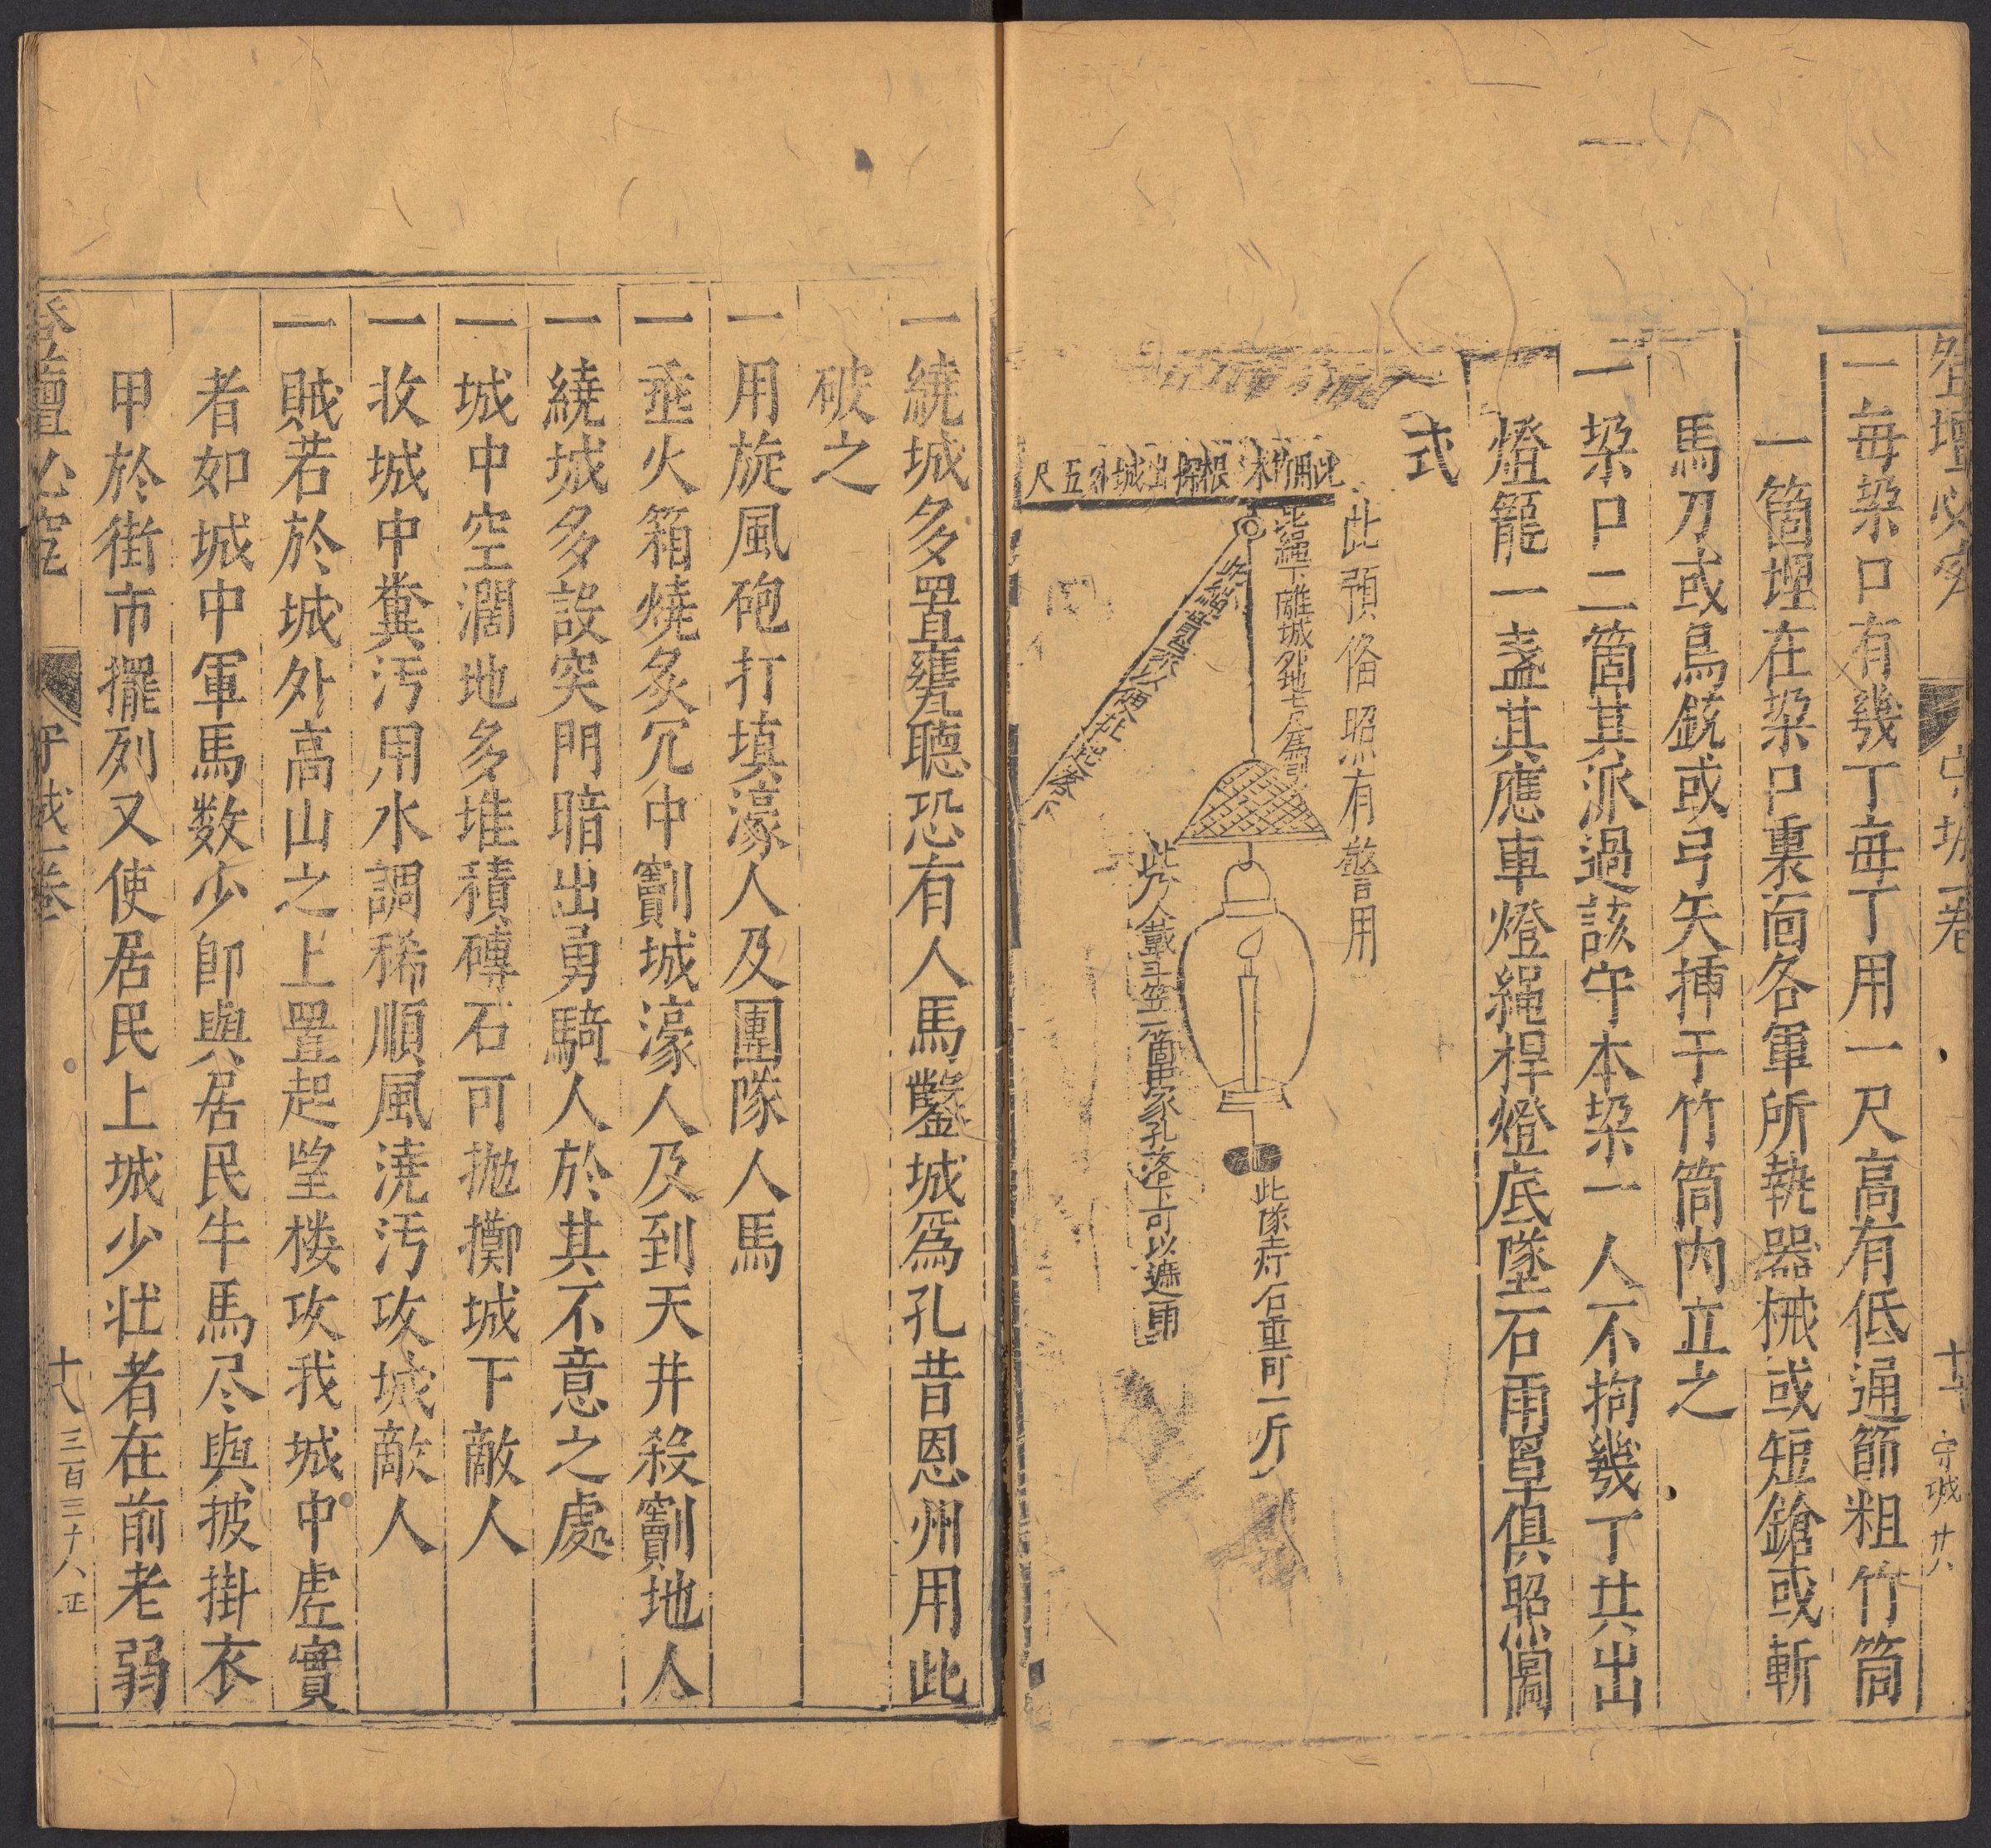 登壇必究
守城一卷
一每垜口有幾丁每丁用一尺高有低通節粗竹筒
一箇埋在垜口裏面各軍所執器械或短鎗或斬
馬刀或鳥銃或弓矢揷于竹筒內立之
一垜口二箇其派過該守本垜一人不拘幾丁共出
燈籠一盞其應車燈繩桿燈底墜石雨罩俱照圖
式
此預俻照有警用
此用竹木一根探出城外五尺
此繩下離城外地
此人戴斗笠一箇
孔落下可以遮雨
此係
石重可一斤
一繞城多置甕聽恐有人馬鑿城爲孔昔恩州用此
破之
一用旋風砲打填濠人及團隊人馬
一垂火箱燒炙冗中劘城濠人及到天井殺劘地人
一繞城多設突門暗出勇騎人於其不意之處
一城中空濶地多堆積磚石可拋擲城下敵人
一收城中糞汚用水調稀順風澆汚攻城敵人
一賊若於城外高山之上置起望楼攻我城中虛實
者如城中軍馬数少卽與居民牛馬尽與披掛衣
甲於街市擺列又使居民上城少壮者在前老弱
登壇必究
守城一卷
十八
三百三十八